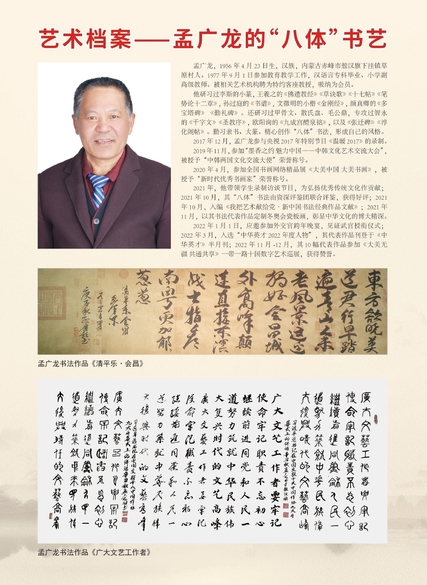 艺术档案——孟广龙的“八体”书艺
孟广龙，1956年4月23日生，汉族，内蒙古赤峰市敖汉旗下洼镇草
原村人。1977年9月1日参加教育教学工作，汉语言专科毕业。小学副
高级教师。被相关艺术机构聘为特约客座教授，吸纳为会员。
他研习过李斯的小篆，王羲之的《佛遗教经》《草诀歌》《十七帖》《笔
势论十二章》，孙过庭的《书谱》，文徵明的小楷《金刚经》，颜真卿的《多
宝塔碑》《勤礼碑》。还研习过甲骨文、散氏盘、毛公鼎，专攻过智永
的《千字文》《圣教序》，欧阳询的《九成宫醴泉铭》，以及《张迁碑》《淳
化阁帖》。勤习隶书、大篆。精心创作“八体”书法，形成自己的风格。
2017年12月，孟广龙参与央视2017年特别节目《温暖2017》的录制。
2019年11月，参加“墨香之约 魅力中国——中韩文化艺术交流大会”，
被授予“中韩两国文化交流大使”荣誉称号。
2020年4月，参加全国书画网络精品展《大美中国 大美书画》，被
授予“新时代优秀书画家”荣誉称号。
2021年，他带领学生录制访谈节目，为弘扬优秀传统文化作贡献；
2021年10月，其“八体”书法由资深评鉴团联合评鉴，获得好评；2021
年10月，入编《我把艺术献给党·新中国书法经典作品文献》；2021年
11月，以其书法代表作品定制冬奥会瓷板画，彰显中华文化的博大精深。
2022年1月1日，应邀参加外交官跨年晚宴，见证武官授衔仪式；
2022年3月，入选“中华英才2022年度人物”，其代表作品刊登于《中
华英才》半月刊；2022年11月-12月，其10幅代表作品参加《大美无
疆 共通共享》一带一路十国数字艺术巡展，获得赞誉。
东方欲晓莫
道君行早踏
遍青山人未
老风景这边
独好会昌城
外高峰颠
连直接东溟
战士指看
南粤更加郁
葱葱
孟广龙书法作品《清平乐·会昌》
广大文艺工作者要牢记
使命牢记职责不忘初心
继续前进同党和人民一
道努力筑就中华民族伟
大复兴时代的文艺高峰
孟广龙书法作品《广大文艺工作者》